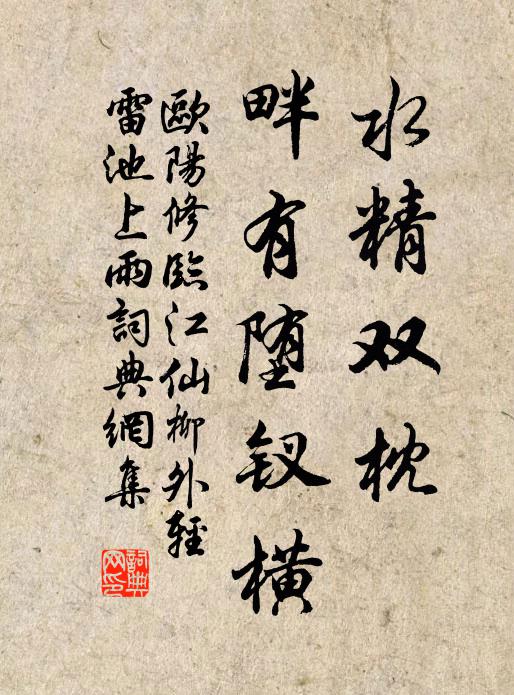 水精双枕
畔有堕钗横
歐陽修臨江仙柳外輕
雷池上雨詞典網集
詞典网印